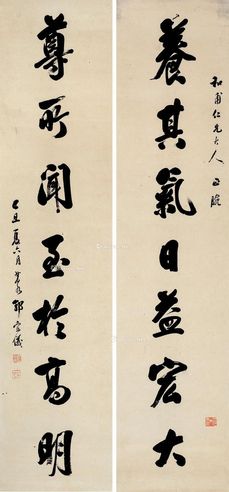 和甫仁兄大人 正腕
養其氣日益宏大
尊所聞至於高明
己丑夏六月